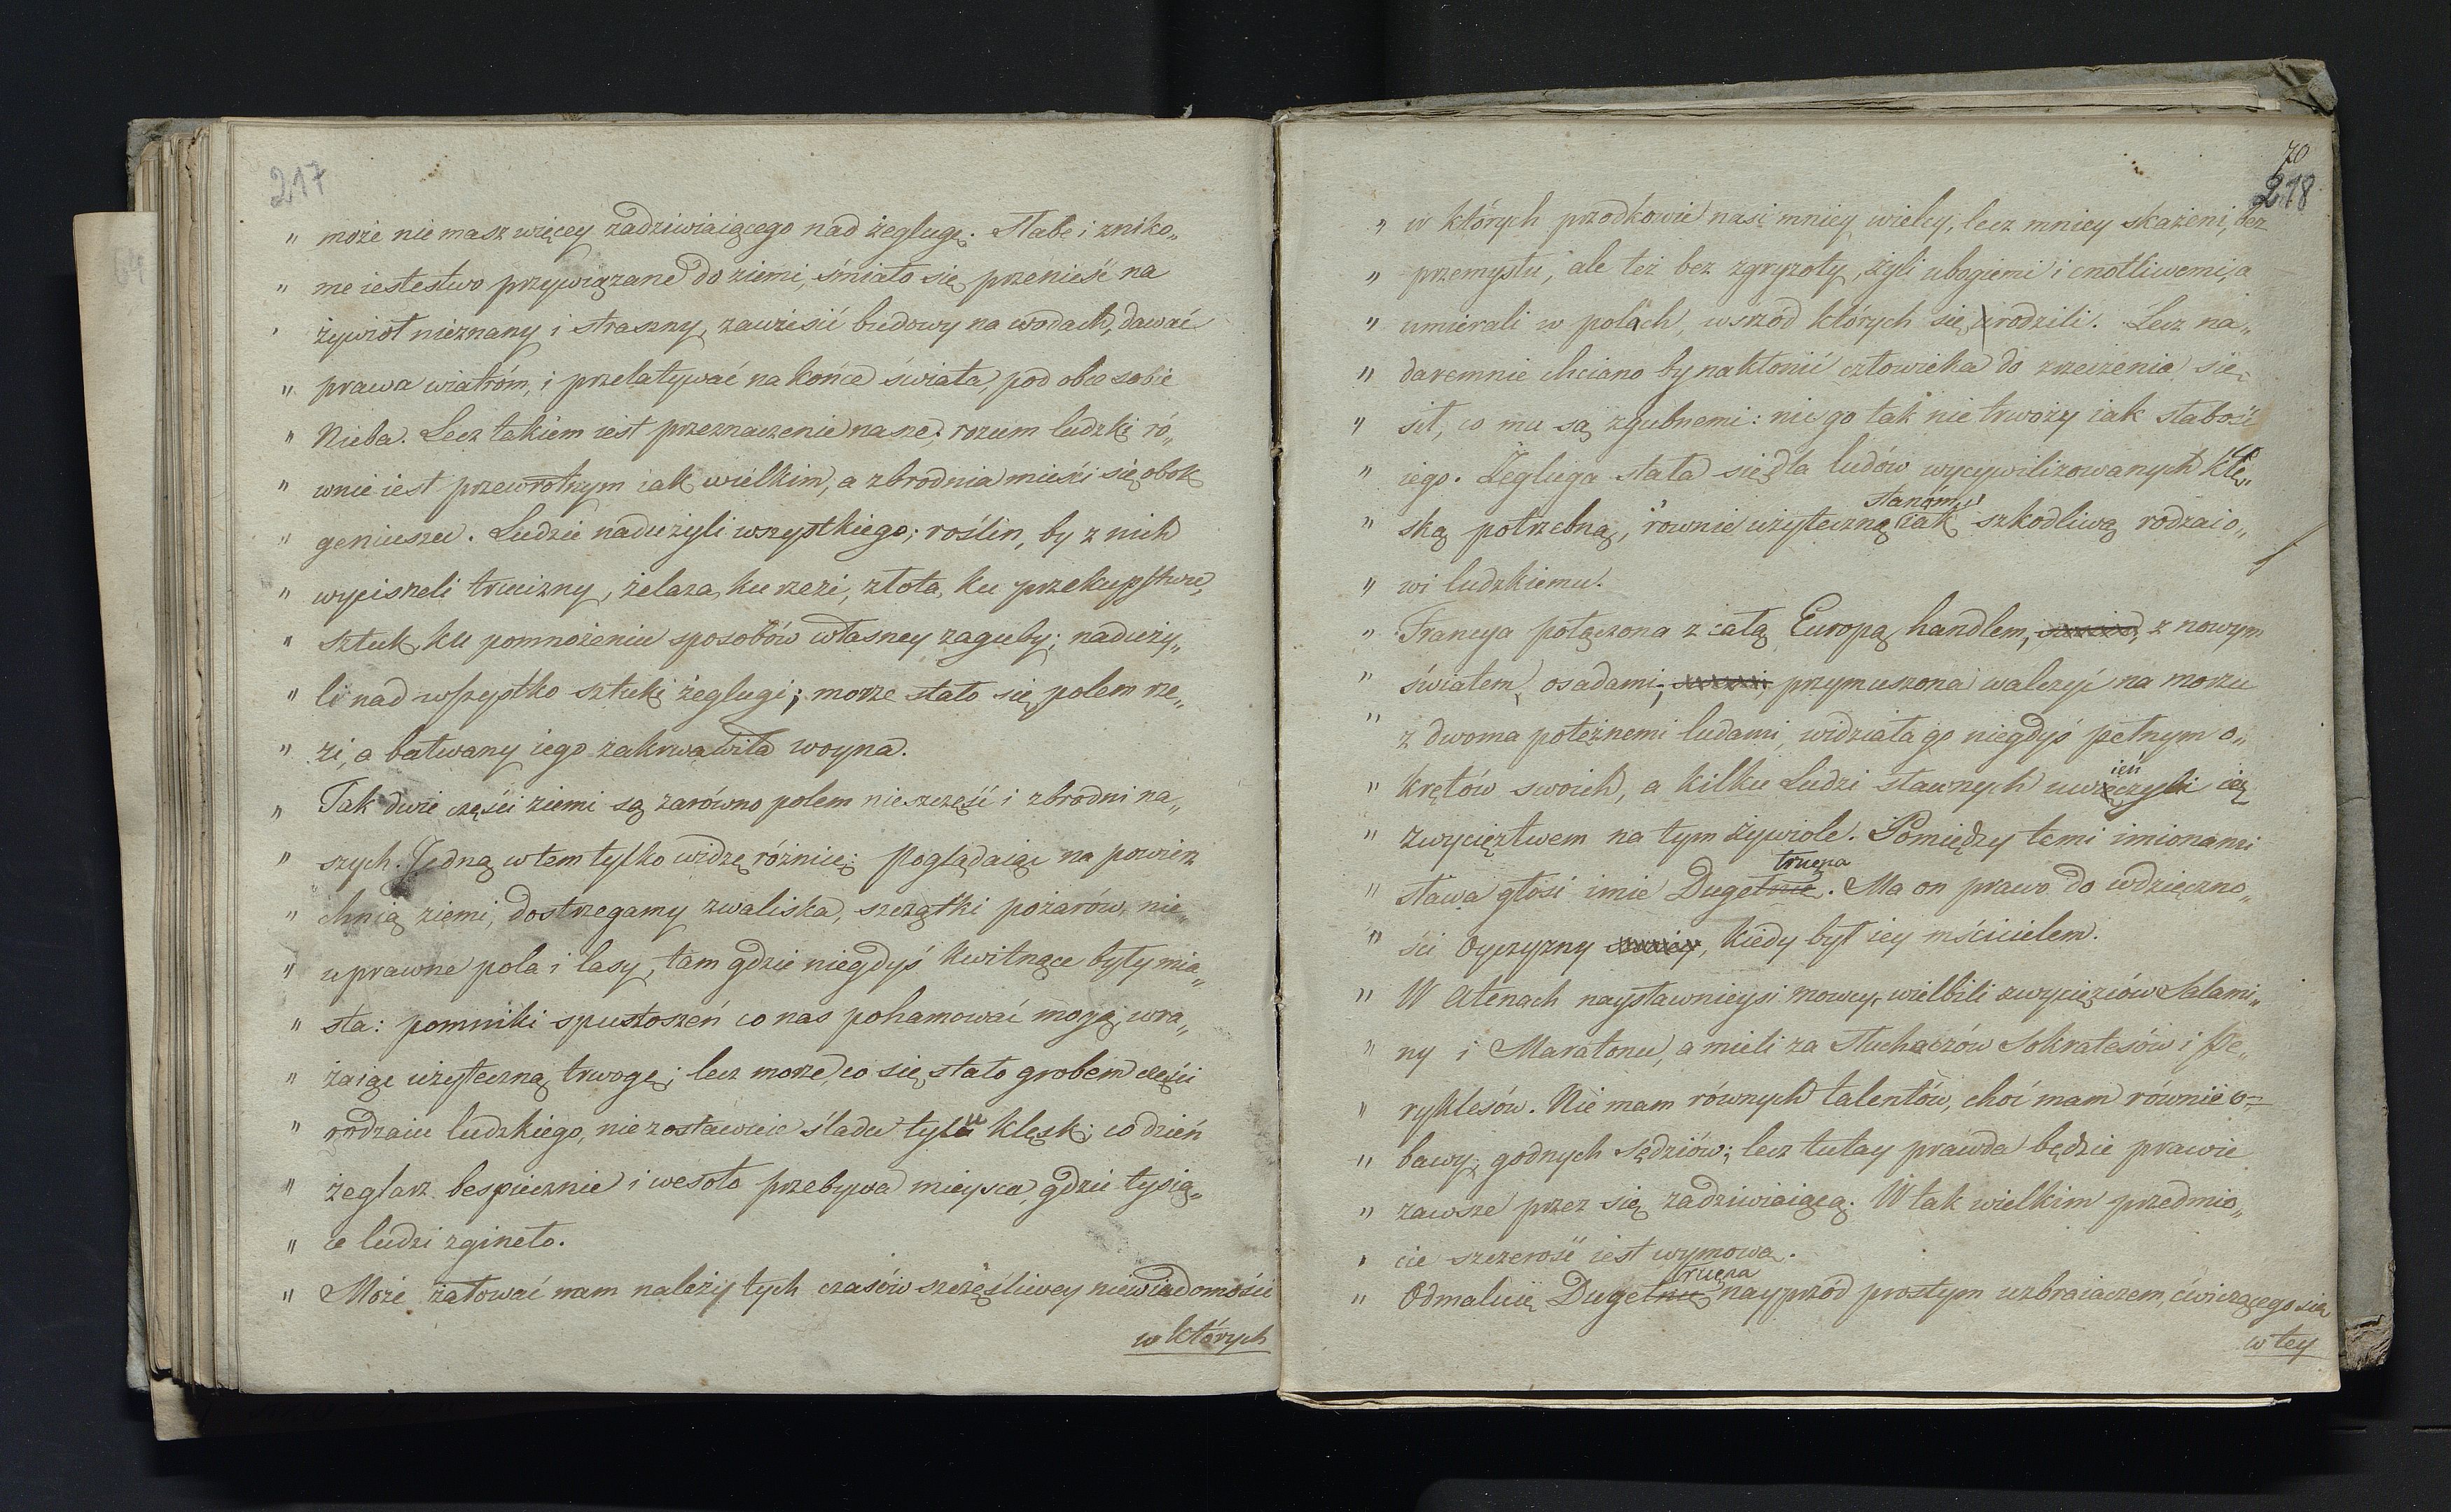 217
„ może nie masz więcey zadziwiaiącego nad żeglugę. Słabe i zniko„
„ me iestestwo przywiązane do ziemi, śmiało się przenieść na
„ żywioł nieznany i straszny, zawiesić budowy na wodach, dawać
„ prawa wiatróm, i przelatywać na końce świata, pod obce sobie
„ Nieba. Lecz takiem iest przeznaczenie nasze; rozum ludzki ró„
„ wnie iest przewrotnym iak wielkim, a zbrodnia mieści się obok
„ geniuszu. Ludzie nadużyli wszystkiego; roślin, by z nich
„ wycisneli trucizny, żelaza, ku rzezi, złota, ku przekupstwu,
„ sztuk, ku pomnożeniu sposobów własney zaguby; naduży„
„ li nad wszystko sztuki żeglugi; morze stało się polem rze„
„ zi, a bałwany iego zakrwawiła woyna.
„ Tak dwie części ziemi są zarówno polem nieszczęść i zbrodni na„
„ szych. Jedną w tem tylko widzę różnicę; poglądaiąc na powierz
„ chnią ziemi, dostrzegamy zwaliska, szczątki pożarów, nie„
„ uprawne pola i lasy, tam gdzie niegdyś kwitnące były mia„
„ sta: pomniki spustoszeń co nas pohamować mogą, wra„
„ żaiąc użyteczną trwogę; lecz morze, co się stało grobem części
„ rodzaiu ludzkiego, nie zostawuie śladu tylu klęsk; co dzień
„ żeglarz bespiecznie i wesoło przebywa mieysca, gdzie tysią„
„ ce ludzi zgineło.
„ Może żałować nam należy tych czasów szczęśliwey niewiadomości
w których
70
218
„ w których przodkowie nasi mniey wielcy, lecz mniey skażeni, bez
„ przemysłu, ale też bez zgryzoty, żyli ubogiemi i cnotliwemi, a
„ umierali w polach, wszód których się urodzili. Lecz na„
„ daremnie chciano by nakłonić człowieka do zrzeczenia się
„ sił, co mu są zgubnemi: nic go tak nie trwoży iak słabość
„ iego. Żegluga stała się dla ludów wycywilizowanych klę„
„ ską potrzebną, równie użyteczną stanóm, iak szkodliwą rodzaio„
„ wi ludzkiemu.
„ Francya połączona z całą Europą handlem, z nowym
„ światem osadami, przymuszona walczyć na morzu
„ z dwoma potężnemi ludami, widziała go niegdyś pełnym o„
„ krętów swoich, a kilku Ludzi sławnych uwieńczyli ią
„ zwycięztwem na tym żywiole. Pomiędzy temi imionami
„ sława głosi imie Dugetruena. Ma on prawo do wdzięczno„
„ ści Oyczyzny, kiedy był iey mścicielem.
„ W Atenach naysławnieysi mowcy wielbili zwycięzców Salami„
„ ny i Maratonu, a mieli za słuchaczów Sokratesów i Pe„
„ ryklesów. Nie mam równych talentów, choć mam równie o„
„ bawy, godnych sędziów; lecz tutay prawda będzie prawie
„ zawsze przez się zadziwiaiącą. W tak wielkim przedmio„
„ cie szczerość iest wymową.
„ Odmaluię Dugetruena nayprzód prostym uzbraiaczem, ćwiczącego się
w tey